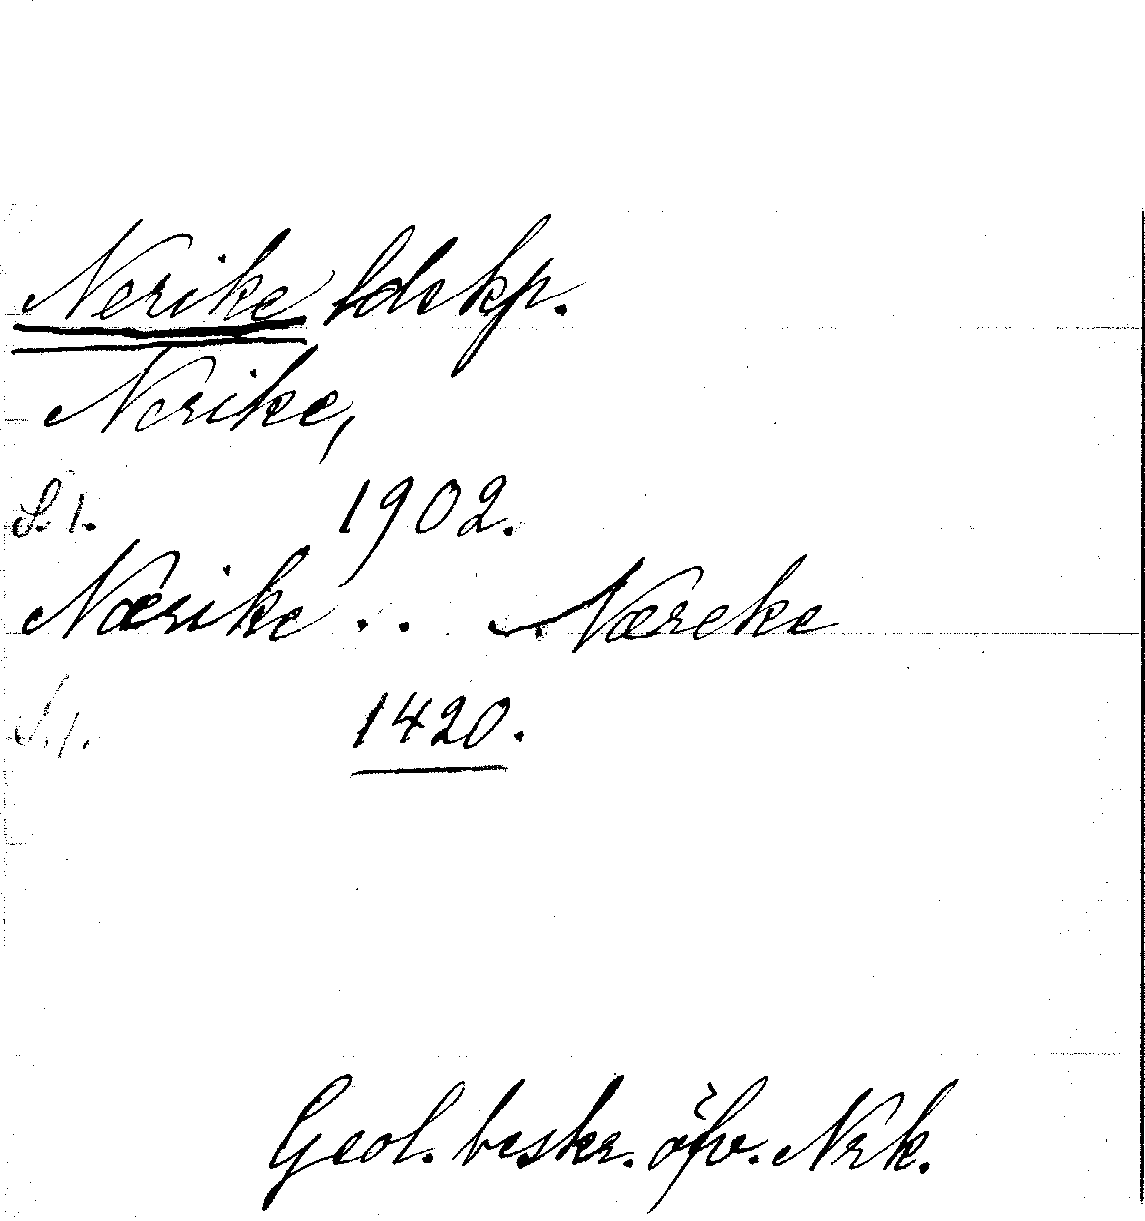 Nerike ldskp.
Nerike,
S. 1. 1902.
Nærike . . Næreke
S. 1. 1420.
Geol. beskr. öfv. Nrk.